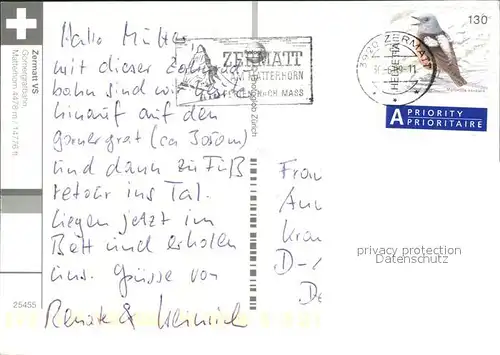 Zermatt VS
Gornergratbahn
Matterhorn 4478 m / 14776 ft
25455
Hallo Mütter,
mit dieser Zahnrad
bahn sind wir
hinauf auf den
Gornergrat (ca 3030m)
und dann zu Fuß
retour ins Tal.
Liegen jetzt im
Bett und erholen
uns. Grüsse von
Renate & Heinrich
ZERMATT
AM MATTERHORN
FERIEN NACH MASS
Zürich
3920 ZERMATT
130
HELVETIA
A PRIORITY
PRIORITAIRE
Frau
D-
privacy protection
Datenschutz